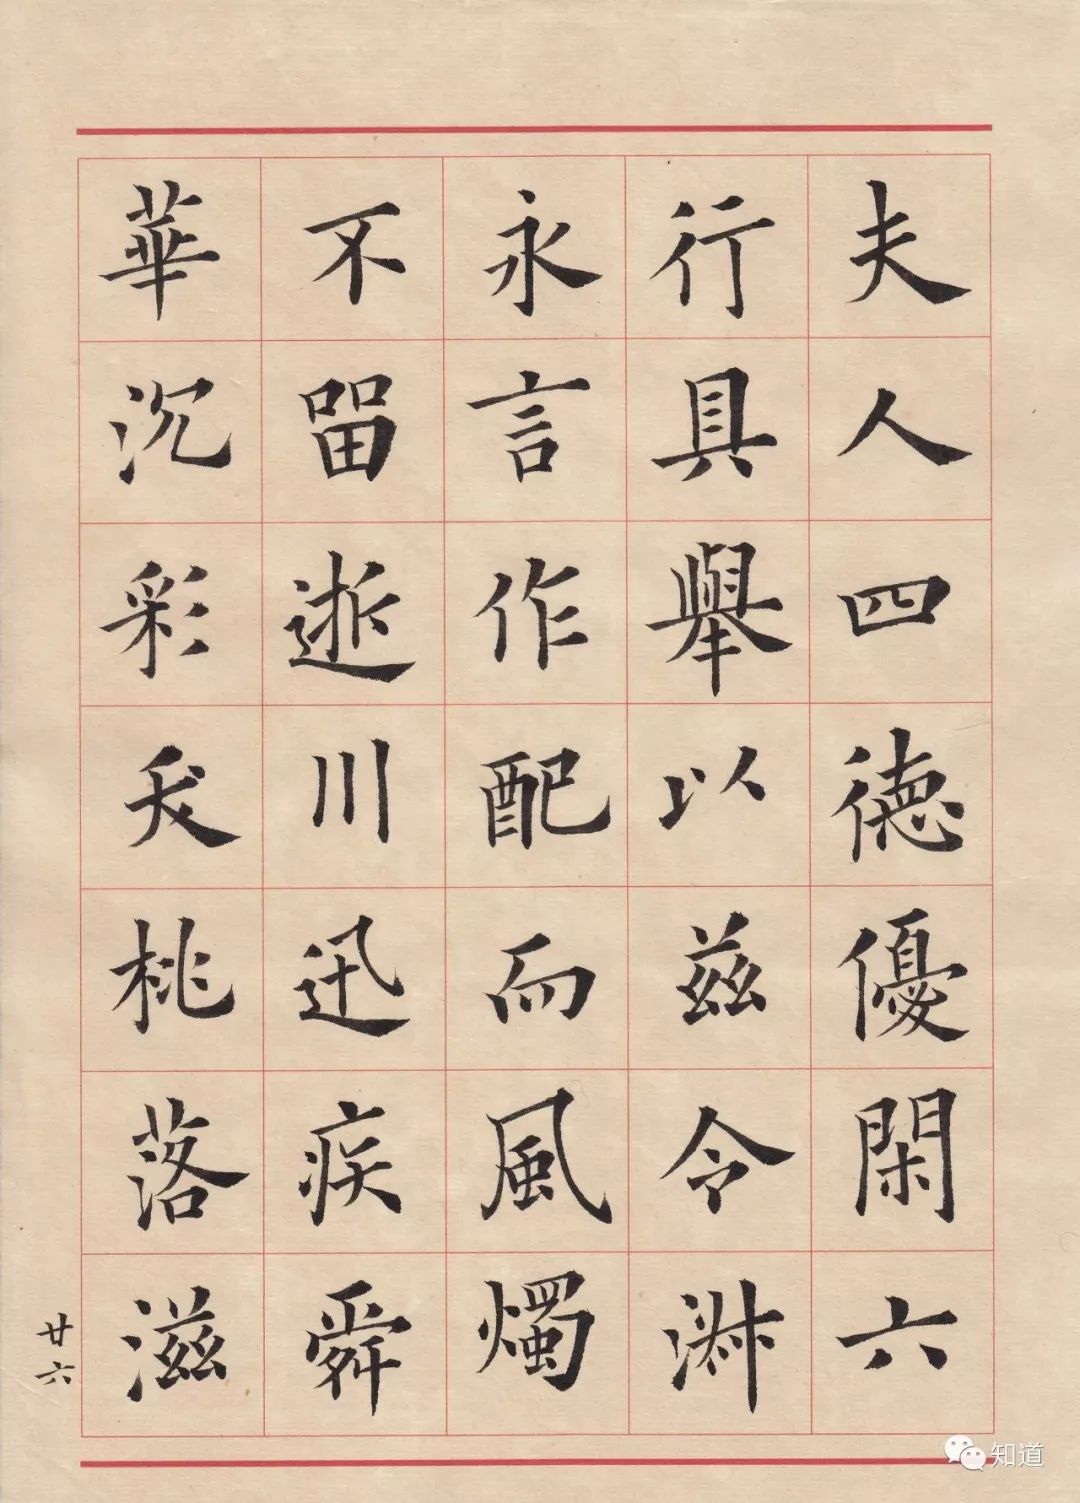 夫人四德優閑六
行具舉以茲令淋
永言作配而風燭
不留逝川迅疾舜
華沉彩夭桃落滋
廿六
知道